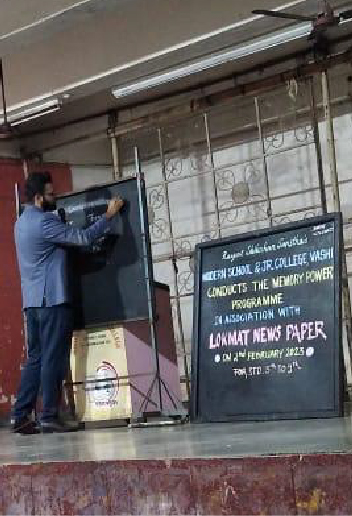 Rayat Shikshan Sanstha's
MODERN SCHOOL & JR. COLLEGE, VASHI
CONDUCTS THE MEMORY POWER
PROGRAMME
IN ASSOCIATION WITH
LOKMAT NEWS PAPER
• ON 2nd FEBRUARY 2023 •
FOR STD. 5th TO